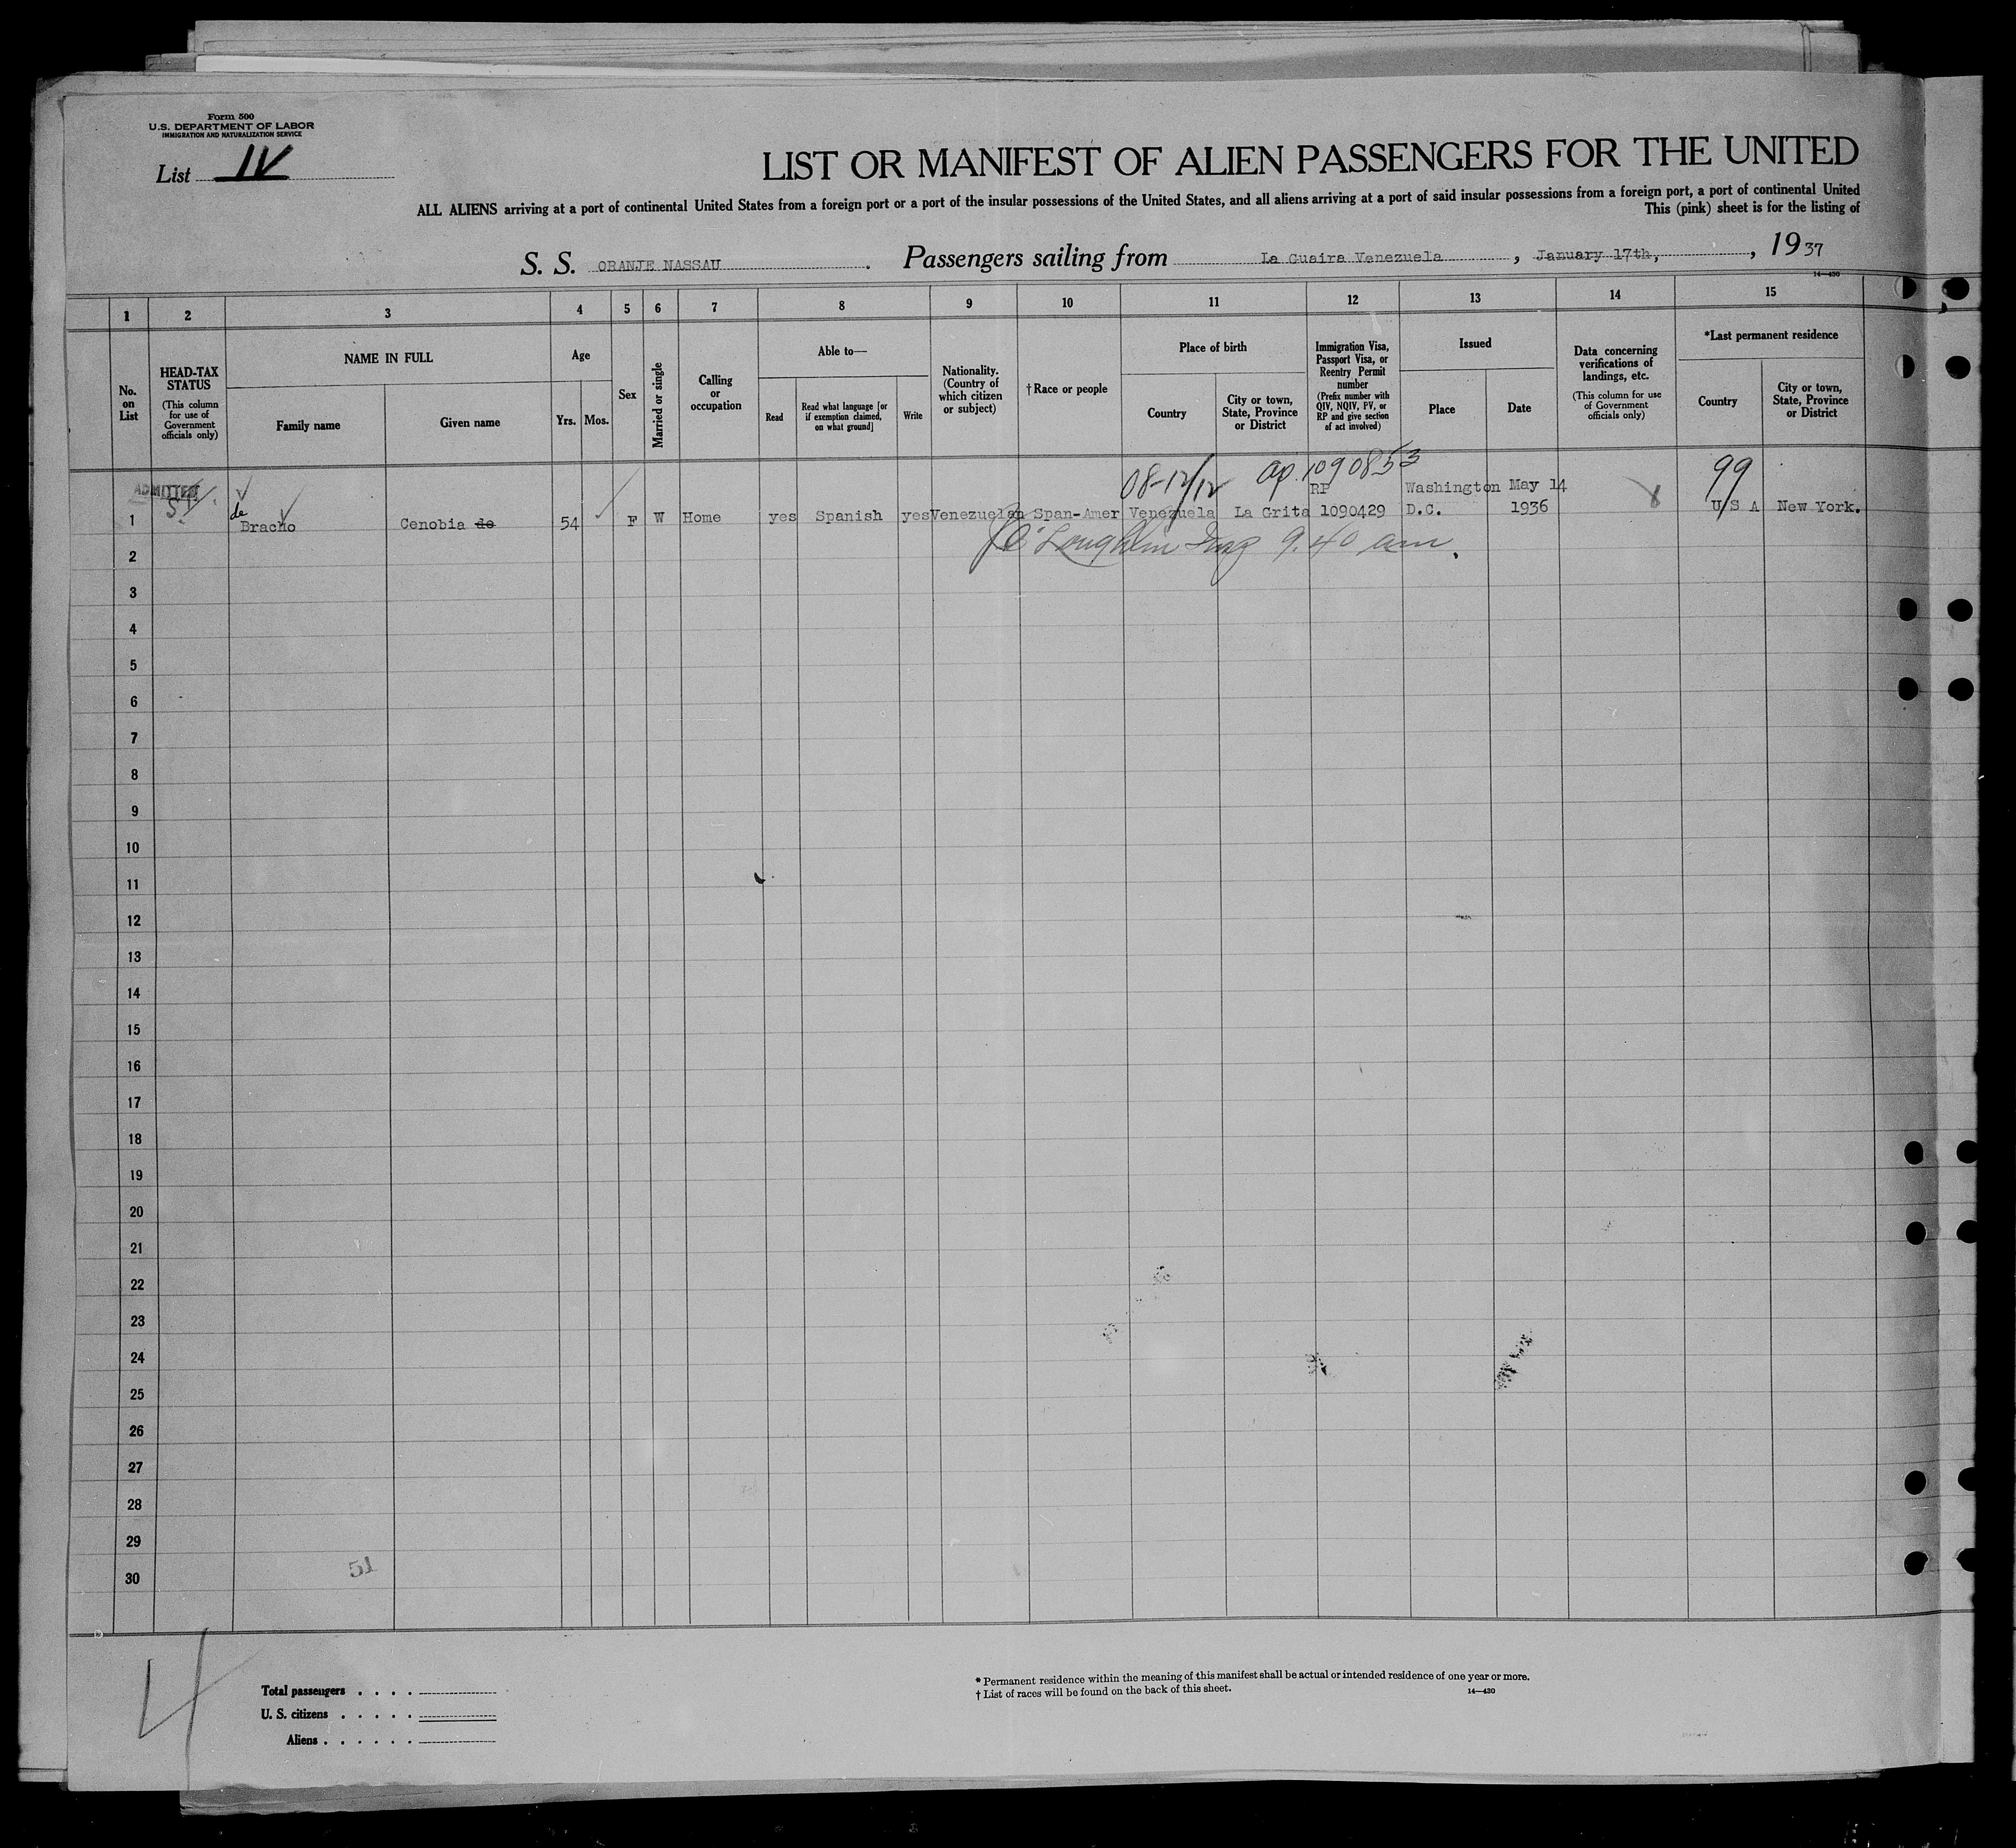 Form 500
U.S. DEPARTMENT OF LABOR
IMMIGRATION AND NATURALIZATION SERVICE
List IV
LIST OR MANIFEST OF ALIEN PASSENGERS FOR THE UNITED
ALL ALIENS arriving at a port of continental United States from a foreign port or a port of the insular possessions of the United States, and all aliens arriving at a port of said insular possessions from a foreign port, a port of continental United
This (pink) sheet is for the listing of
S. S. ORANJE NASSAU. Passengers sailing from La Guaira Venezuela, January 17th, , 1937
14—430
1 2 3 4 5 6 7 8 9 10 11 12 13 14 15
No. on List
HEAD-TAX STATUS (This column for use of Government officials only)
NAME IN FULL
Family name
Given name
Age
Yrs. Mos.
Sex
Married or single
Calling or occupation
Able to—
Read
Read what language [or if exemption claimed, on what ground]
Write
Nationality. (Country of which citizen or subject)
†Race or people
Place of birth
Country
City or town, State, Province or District
Immigration Visa, Passport Visa, or Reentry Permit number (Prefix number with QIV, NQIV, PV, or RP and give section of act involved)
Issued
Place
Date
Data concerning verifications of landings, etc. (This column for use of Government officials only)
*Last permanent residence
Country
City or town, State, Province or District
08-12/12 ap. 1090853 99
ADMITTED RP Washington May 14
de
1 Bracho Cenobia de 54 F W Home yes Spanish yes Venezuelan Span-Amer Venezuela La Grita 1090429 D.C. 1936 U S A New York.
O'Loughlin 9.40 am.
2
3
4
5
6
7
8
9
10
11
12
13
14
15
16
17
18
19
20
21
22
23
24
25
26
27
28
29
51
30
4
Total passengers . . . .
U. S. citizens . . . . .
Aliens . . . . . .
* Permanent residence within the meaning of this manifest shall be actual or intended residence of one year or more.
† List of races will be found on the back of this sheet.
14—430